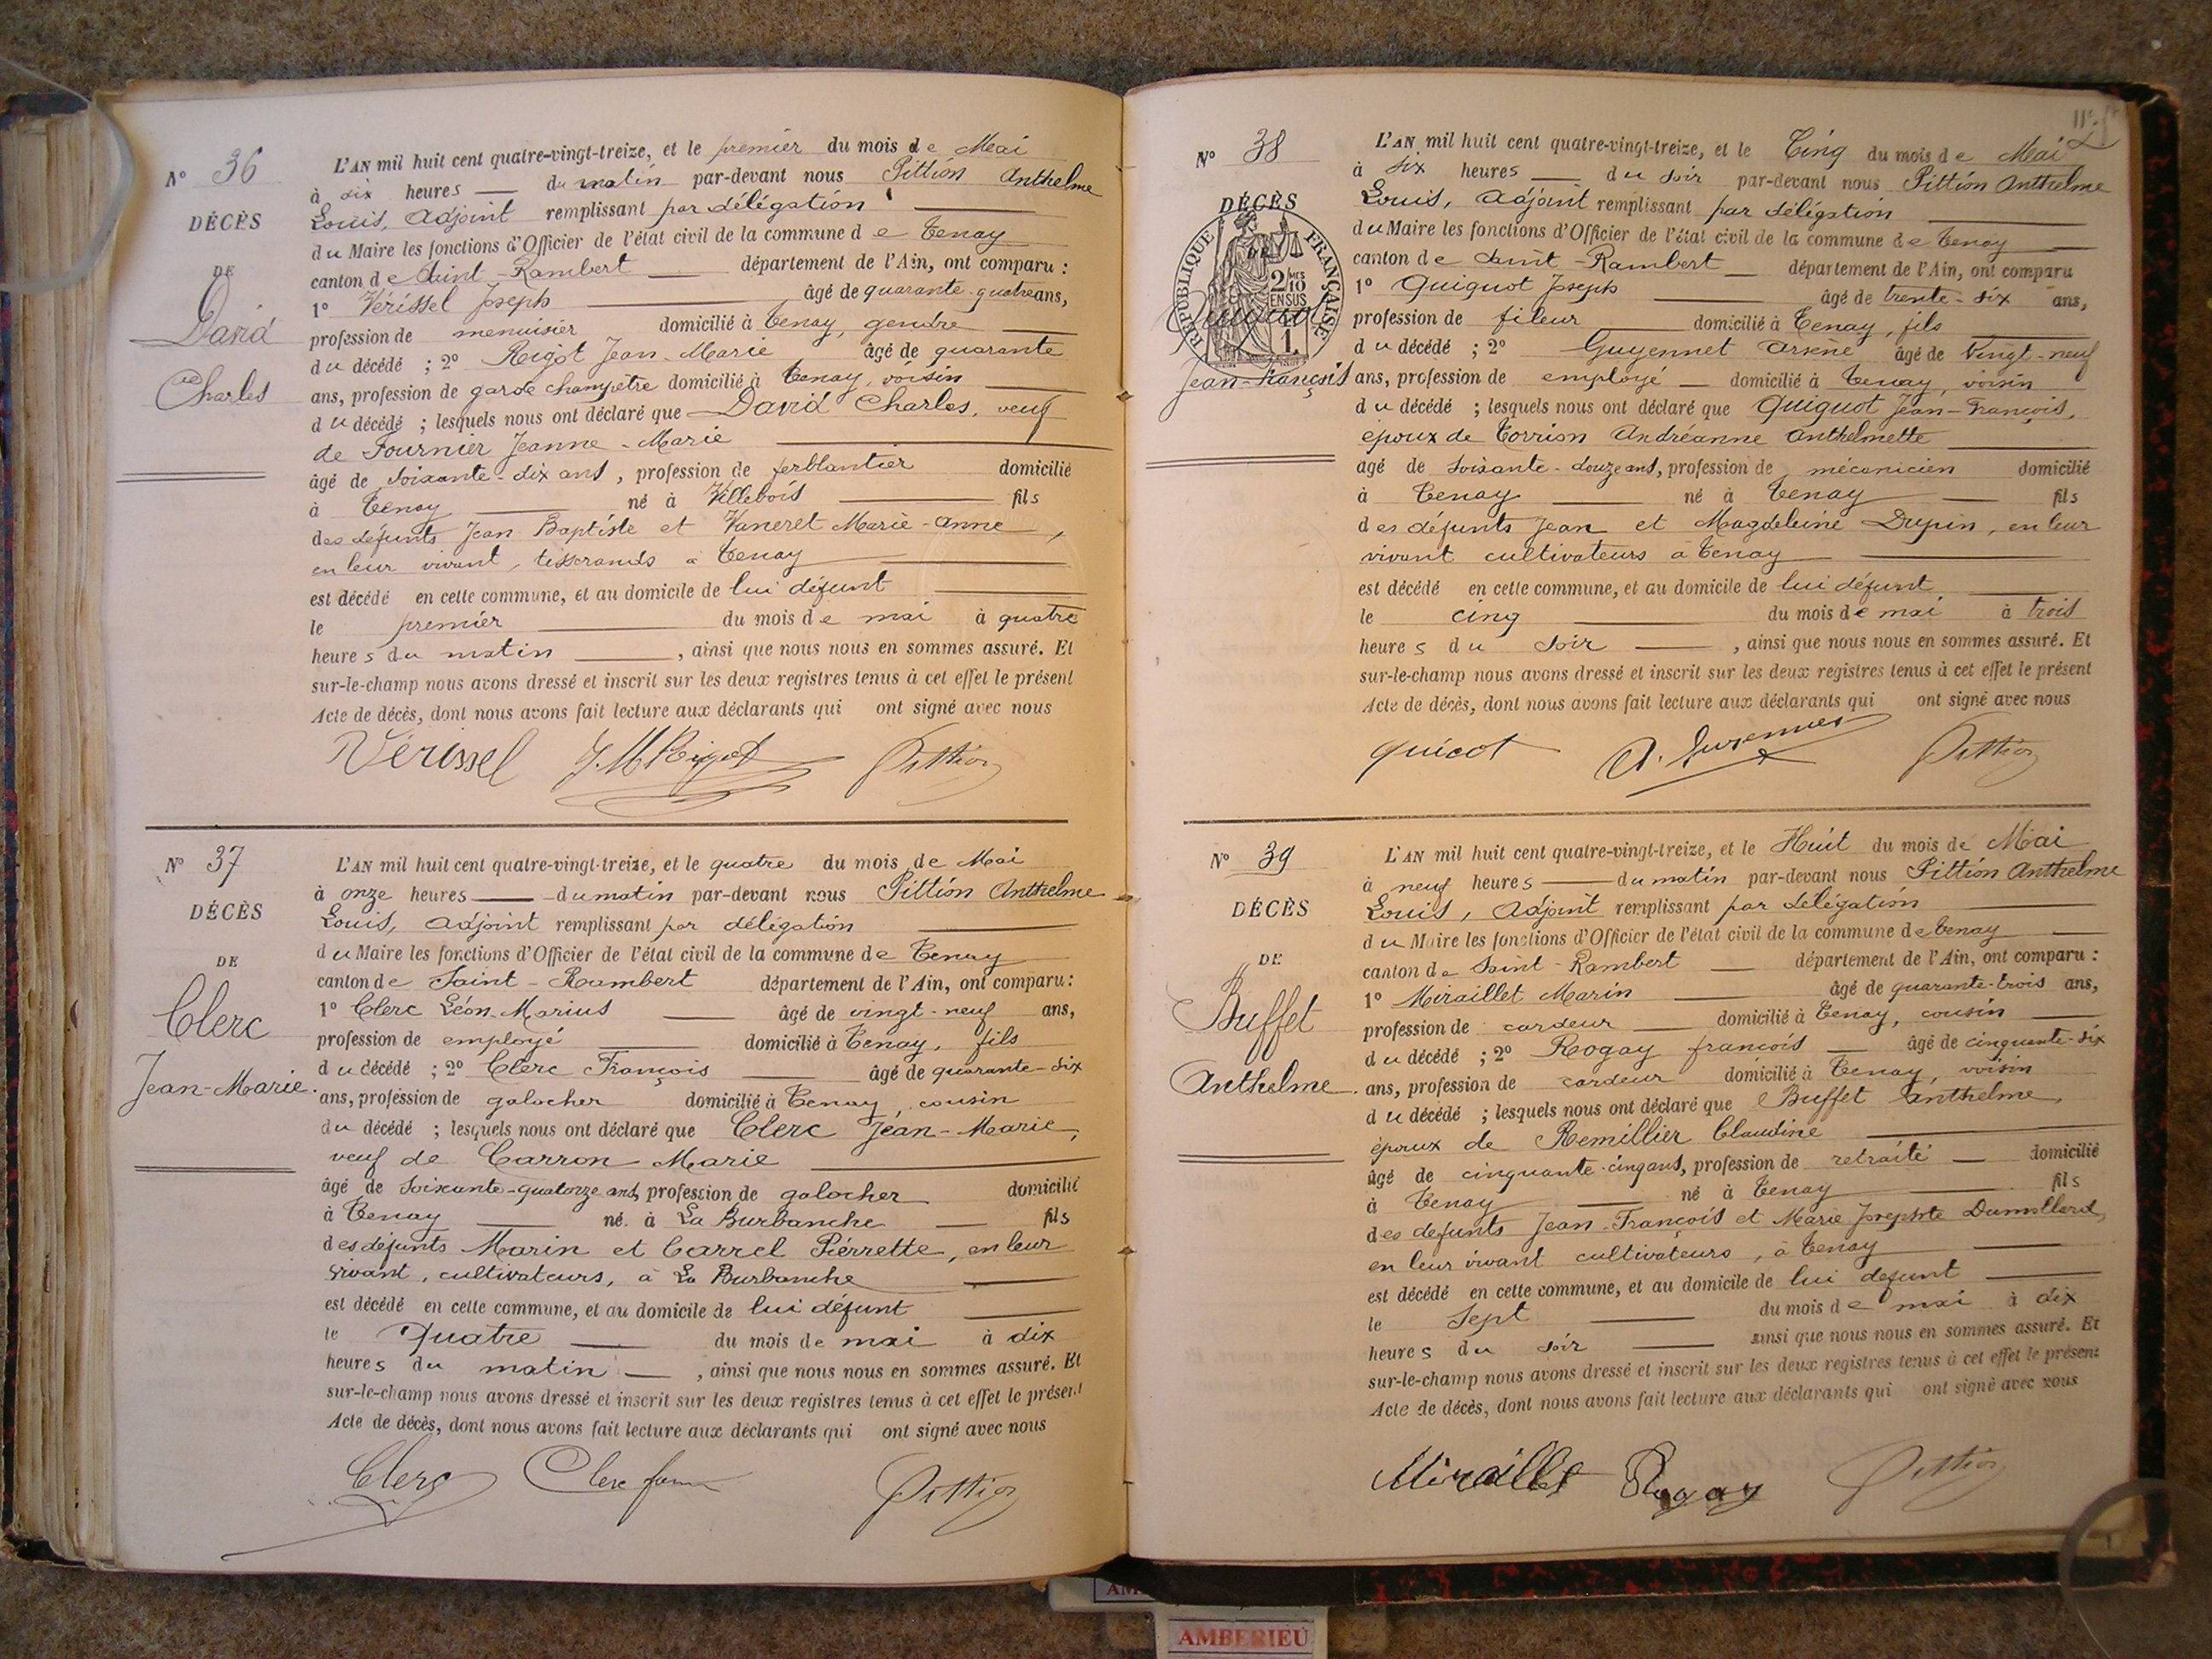 N° 36
DÉCÈS
DE
David
Charles
L'AN mil huit cent quatre-vingt-treize, et le premier du mois de Mai
à dix heures du matin par-devant nous Pittion Anthelme
Louis, adjoint remplissant par délégation
du Maire les fonctions d'Officier de l'état civil de la commune de Tenay
canton de Saint-Rambert département de l'Ain, ont comparu :
1° Vérissel Joseph âgé de quarante-quatre ans,
profession de menuisier domicilié à Tenay, gendre
du décédé ; 2° Rigot Jean-Marie âgé de quarante
ans, profession de garde champêtre domicilié à Tenay, voisin
du décédé ; lesquels nous ont déclaré que David Charles, veuf
de Fournier Jeanne-Marie
âgé de soixante-dix ans, profession de ferblantier domicilié
à Tenay né à Villebois fils
des défunts Jean-Baptiste et Vaneret Marie-Anne,
en leur vivant, tisserands à Tenay
est décédé en cette commune, et au domicile de lui défunt
le premier du mois de mai à quatre
heures du matin, ainsi que nous nous en sommes assuré. Et
sur-le-champ nous avons dressé et inscrit sur les deux registres tenus à cet effet le présent
Acte de décès, dont nous avons fait lecture aux déclarants qui ont signé avec nous
Vérissel J.M Rigot Pittion
N° 37
DÉCÈS
DE
Clerc
Jean-Marie.
L'AN mil huit cent quatre-vingt-treize, et le quatre du mois de Mai
à onze heures du matin par-devant nous Pittion Anthelme
Louis, adjoint remplissant par délégation
du Maire les fonctions d'Officier de l'état civil de la commune de Tenay
canton de Saint-Rambert département de l'Ain, ont comparu :
1° Clerc Léon-Marius âgé de vingt-neuf ans,
profession de employé domicilié à Tenay, fils
du décédé ; 2° Clerc François âgé de quarante-six
ans, profession de galocher domicilié à Tenay, cousin
du décédé ; lesquels nous ont déclaré que Clerc Jean-Marie,
veuf de Carron Marie
âgé de soixante-quatorze ans, profession de galocher domicilié
à Tenay né à La Burbanche fils
des défunts Marin et Carrel Piérrette, en leur
vivant, cultivateurs, à La Burbanche
est décédé en cette commune, et au domicile de lui défunt
le Quatre du mois de mai à dix
heures du matin, ainsi que nous nous en sommes assuré. Et
sur-le-champ nous avons dressé et inscrit sur les deux registres tenus à cet effet le présent
Acte de décès, dont nous avons fait lecture aux déclarants qui ont signé avec nous
Clerc Clerc Pittion
N° 38
DÉCÈS
DE
RÉPUBLIQUE FRANÇAISE
2 MES
10
EN SUS
1
Jean-François
L'AN mil huit cent quatre-vingt-treize, et le Cinq du mois de Mai
à six heures du soir par-devant nous Pittion Anthelme
Louis, adjoint remplissant par délégation
du Maire les fonctions d'Officier de l'état civil de la commune de Tenay
canton de Saint-Rambert département de l'Ain, ont comparu
1° Quiguot Joseph âgé de trente-six ans,
profession de fileur domicilié à Tenay, fils
du décédé ; 2° Guyennet Arsène âgé de vingt-neuf
ans, profession de employé domicilié à Tenay, voisin
du décédé ; lesquels nous ont déclaré que Quiguot Jean-François,
époux de Torrion Andréanne Anthelmette
âgé de soixante-douze ans, profession de mécanicien domicilié
à Tenay né à Tenay fils
des défunts Jean et Magdeleine Dupin, en leur
vivant cultivateurs à Tenay
est décédé en cette commune, et au domicile de lui défunt
le cinq du mois de mai à trois
heures du soir, ainsi que nous nous en sommes assuré. Et
sur-le-champ nous avons dressé et inscrit sur les deux registres tenus à cet effet le présent
Acte de décès, dont nous avons fait lecture aux déclarants qui ont signé avec nous
quicot A. Pittion
N° 39
DÉCÈS
DE
Buffet
Anthelme.
L'AN mil huit cent quatre-vingt-treize, et le Huit du mois de Mai
à neuf heures du matin par-devant nous Pittion Anthelme
Louis, Adjoint remplissant par délégation
du Maire les fonctions d'Officier de l'état civil de la commune de Tenay
canton de Saint-Rambert département de l'Ain, ont comparu :
1° Miraillet Marin âgé de quarante-trois ans,
profession de cardeur domicilié à Tenay, cousin
du décédé ; 2° Rogay françois âgé de cinquante-six
ans, profession de cardeur domicilié à Tenay, voisin
du décédé ; lesquels nous ont déclaré que Buffet Anthelme,
époux de Remillier Claudine
âgé de cinquante-cinq ans, profession de retraité domicilié
à Tenay né à Tenay fils
des defunts Jean-François et Marie Josephte Dumollard,
en leur vivant cultivateurs, à Tenay
est décédé en cette commune, et au domicile de lui defunt
le Sept du mois de mai à dix
heures du soir ainsi que nous nous en sommes assuré. Et
sur-le-champ nous avons dressé et inscrit sur les deux registres tenus à cet effet le présent
Acte de décès, dont nous avons fait lecture aux déclarants qui ont signé avec nous
Miraillet Rogay Pittion
AMBERIEU